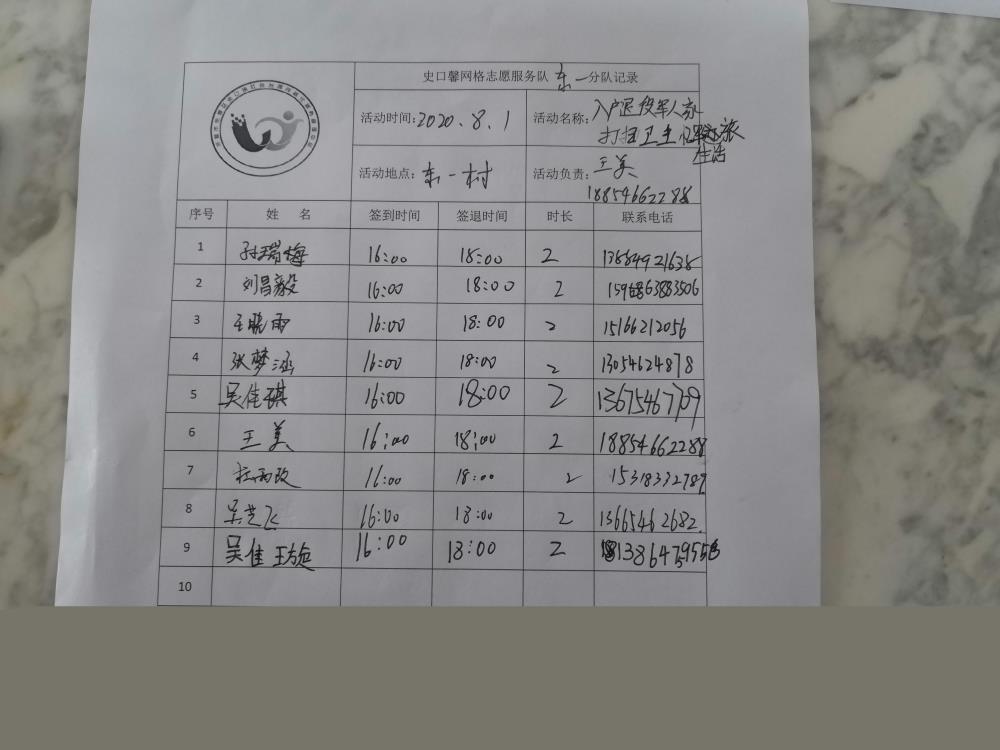 史口馨网格志愿服务队 东一 分队记录
活动时间: 2020.8.1
活动名称: 入户退役军人家
打扫卫生
生活
活动地点: 东一村
活动负责: 王美
18854662288
序号 姓 名 签到时间 签退时间 时长 联系电话
1 孙瑞梅 16:00 18:00 2
2 刘昌毅 16:00 18:00 2
3 王晓雨 16:00 18:00 2 15166212056
4 张梦涵 16:00 18:00 2 13054624878
5 吴佳琪 16:00 18:00 2 13675467709
6 王美 16:00 18:00 2 18854662288
7 16:00 18:00 2 15318332787
8 吴艺飞 16:00 18:00 2 13665462682
9 吴佳 16:00 18:00 2
10